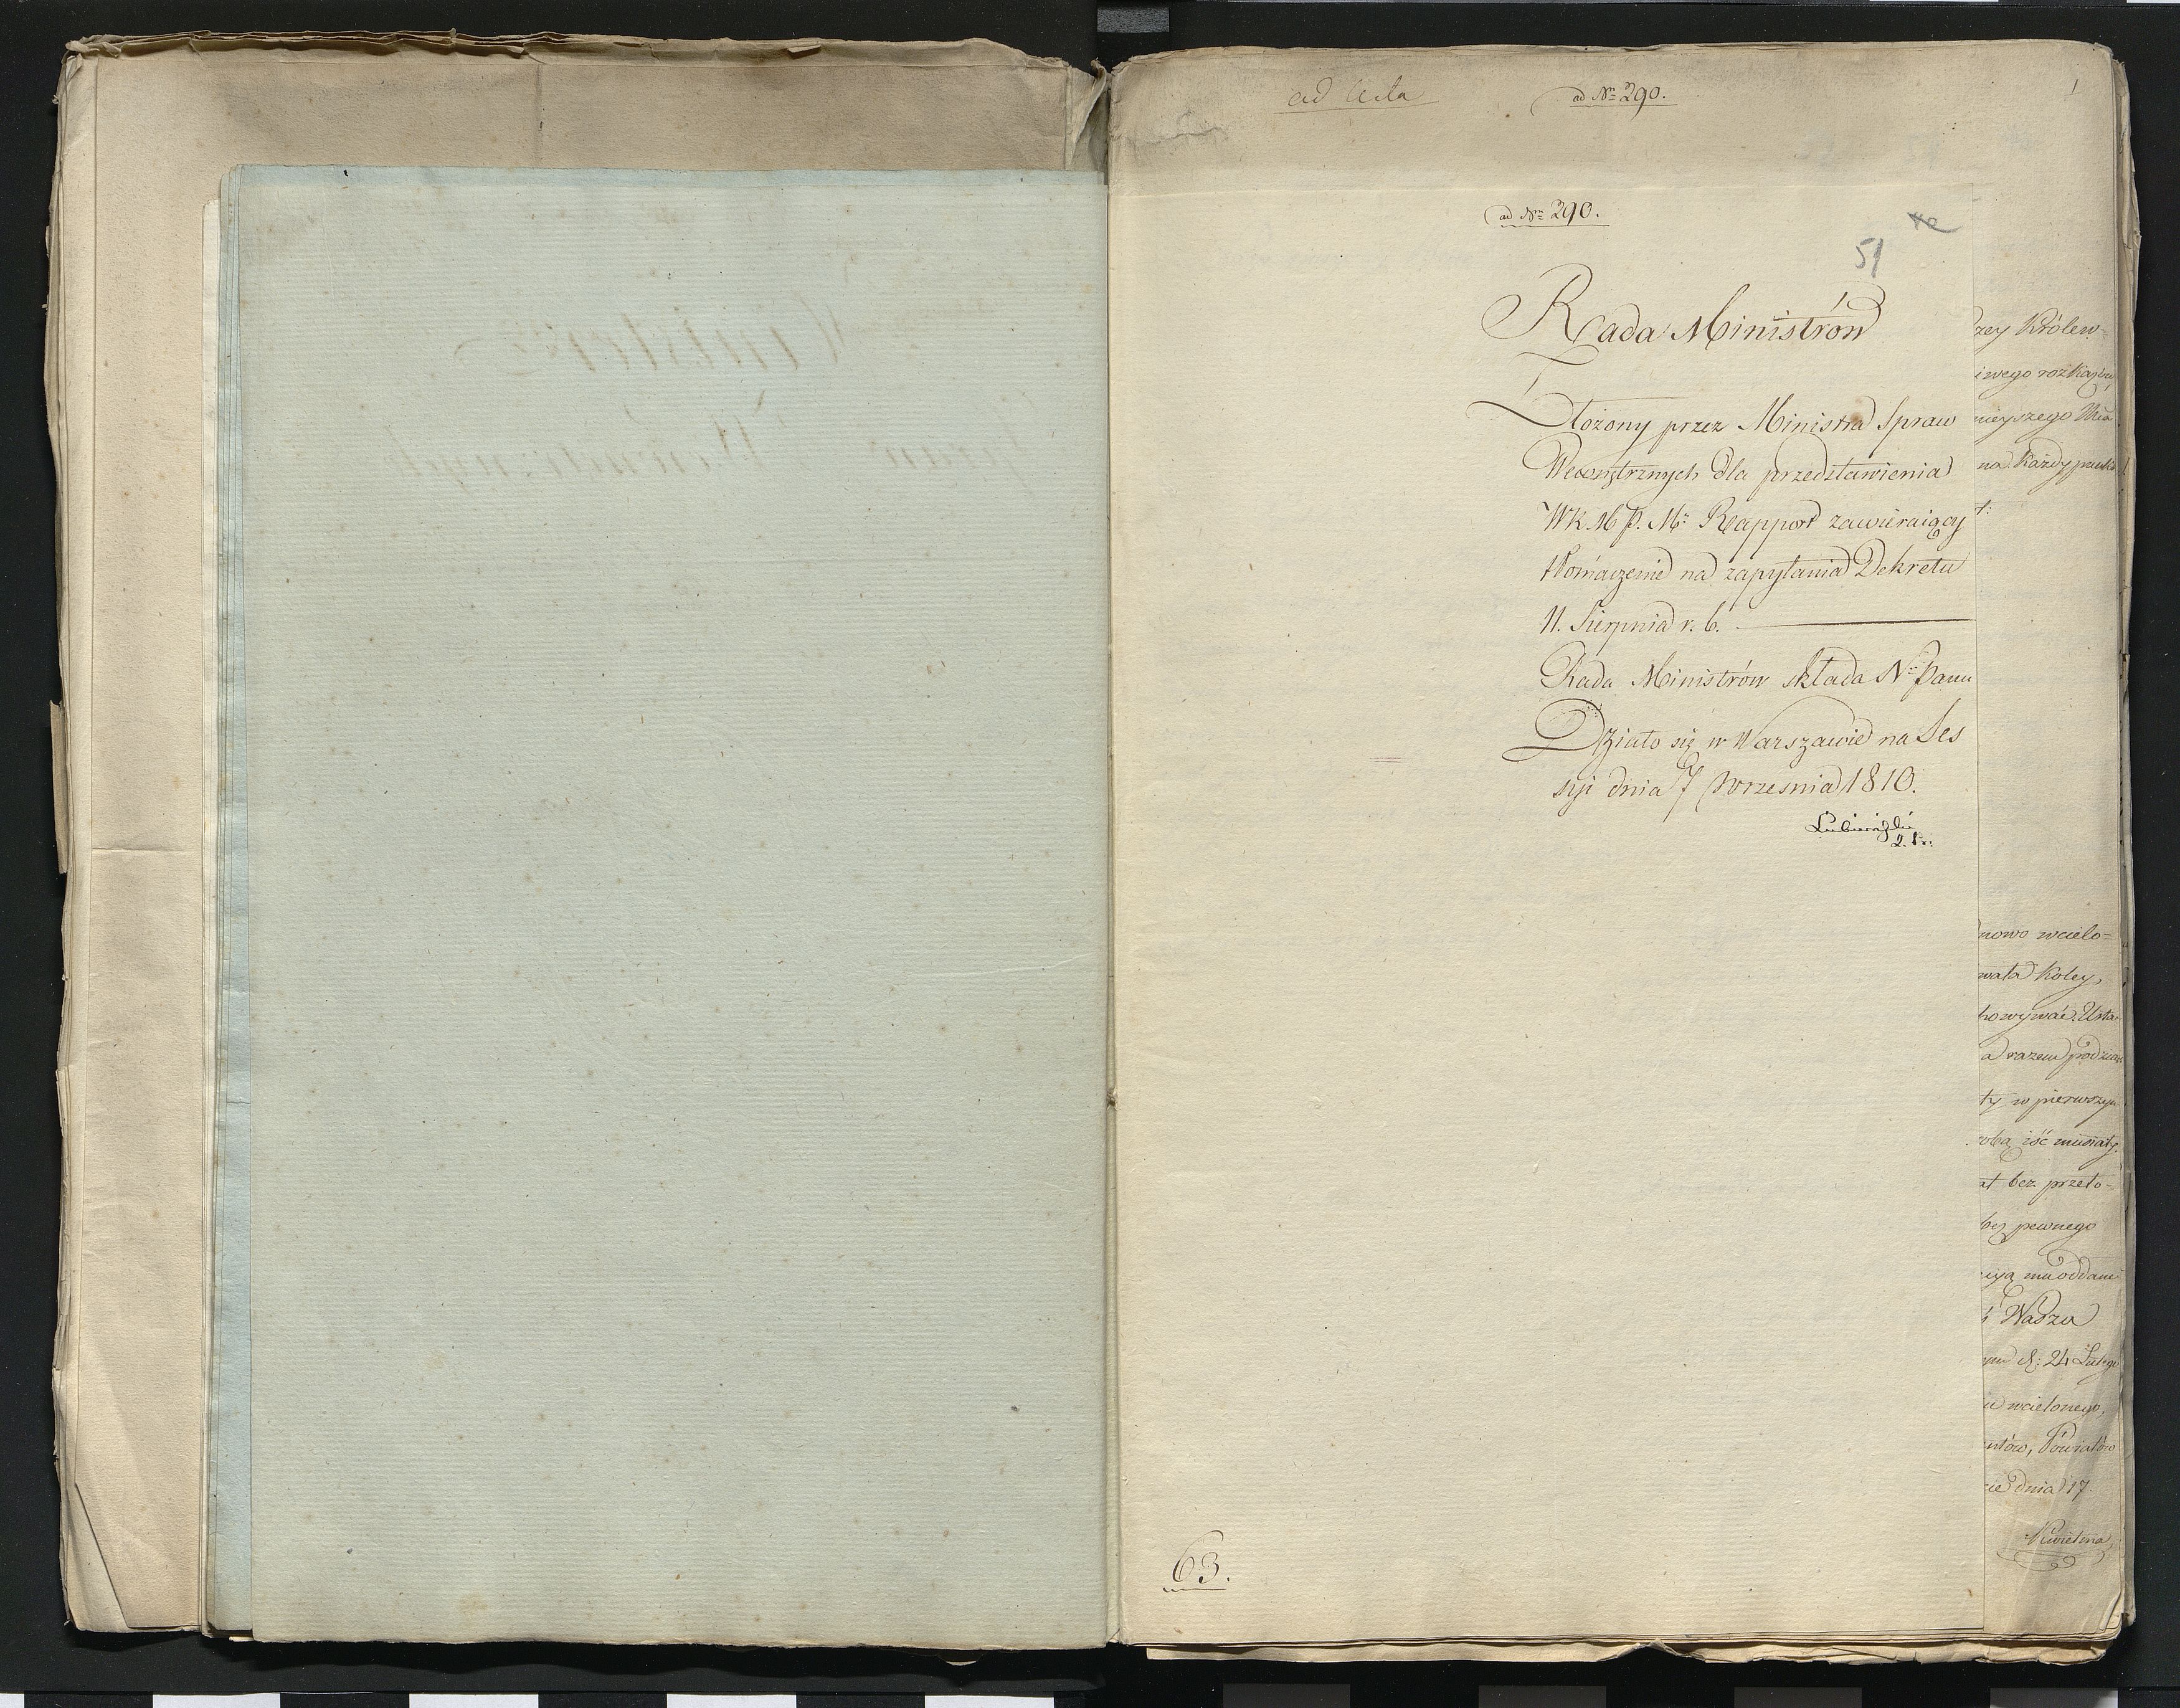 ad acta
ad Nrm 290.
1
ad Nrm 290.
51
Rada Ministrów
Złożony przez Ministra Spraw
Wewnętrznych dla przedstawienia
WKMP. Mu Rapport zawieraiący
tłomaczenie na zapytania Dekretu
11. Sierpnia r. b.
Rada Ministrów składa Nmu Panu
Działo się w Warszawie na Ses
syi dnia 7 Września 1810.
Lubieński
63.
zey Królew-
iwego rozkazu
nieyszego
na każdy punkt
t:
nowo wcielo=
wała koley,
howywać. Usta-
a razem podzia
ty w pierwszym
robą iść musiały.
at bez przeło-
by pewnego
cyą mu oddane
Wadza
d: 24 Lutego
u wcielonego,
ntów, Powiatów
ie dnia 17
Kwietnia